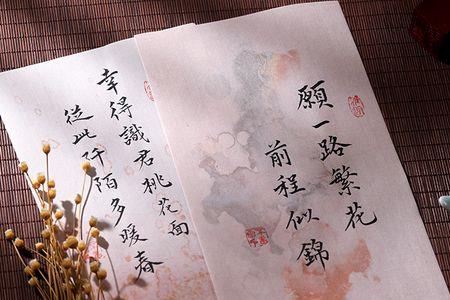 願一路繁花
前程似錦
幸得識君桃花面
從此阡陌多暖春